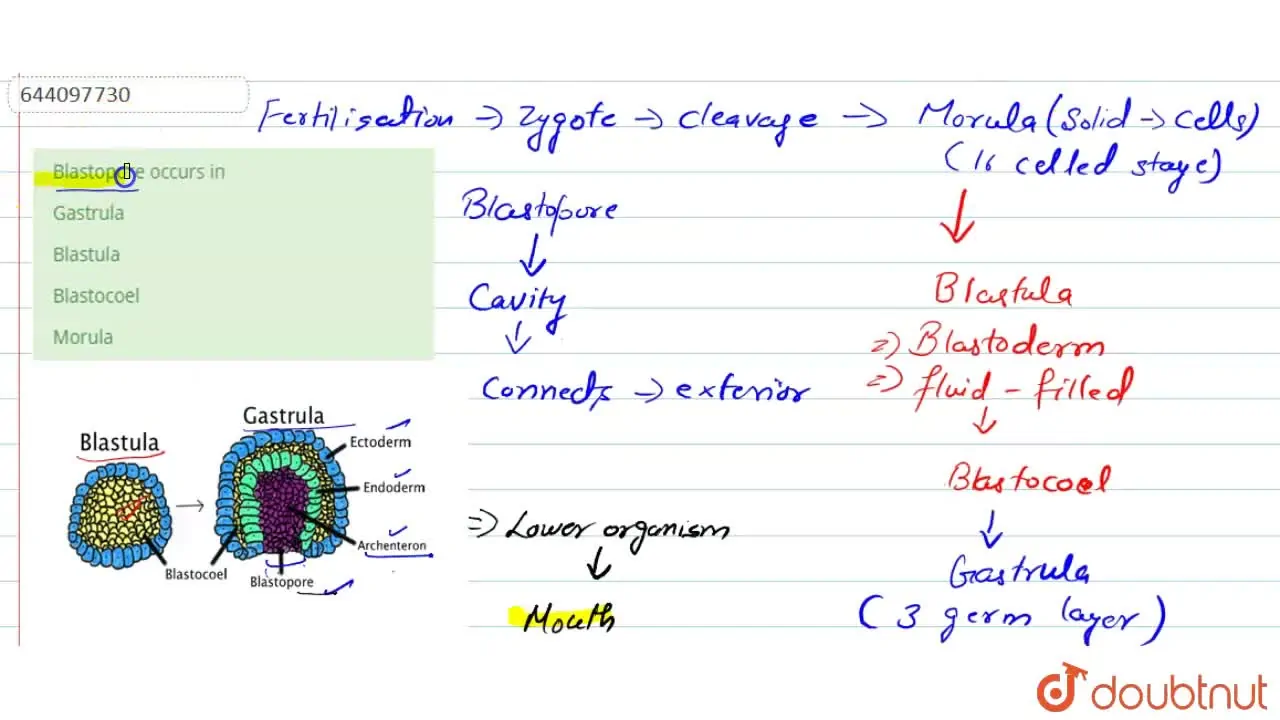 644097730
Fertilisation → Zygote → cleavage → Morula (solid → cells)
(16 celled stage)
Blastopore occurs in
Gastrula
Blastula
Blastocoel
Morula
Blastopore
↓
Cavity
↓
Connects → exterior
⇒ Lower organism
↓
Mouth
↓
Blastula
⇒ Blastoderm
⇒ fluid - filled
↓
Blastocoel
↓
Gastrula
(3 germ layer)
Blastula
Gastrula
Ectoderm
Endoderm
Archenteron
Blastocoel
Blastopore
doubtnut